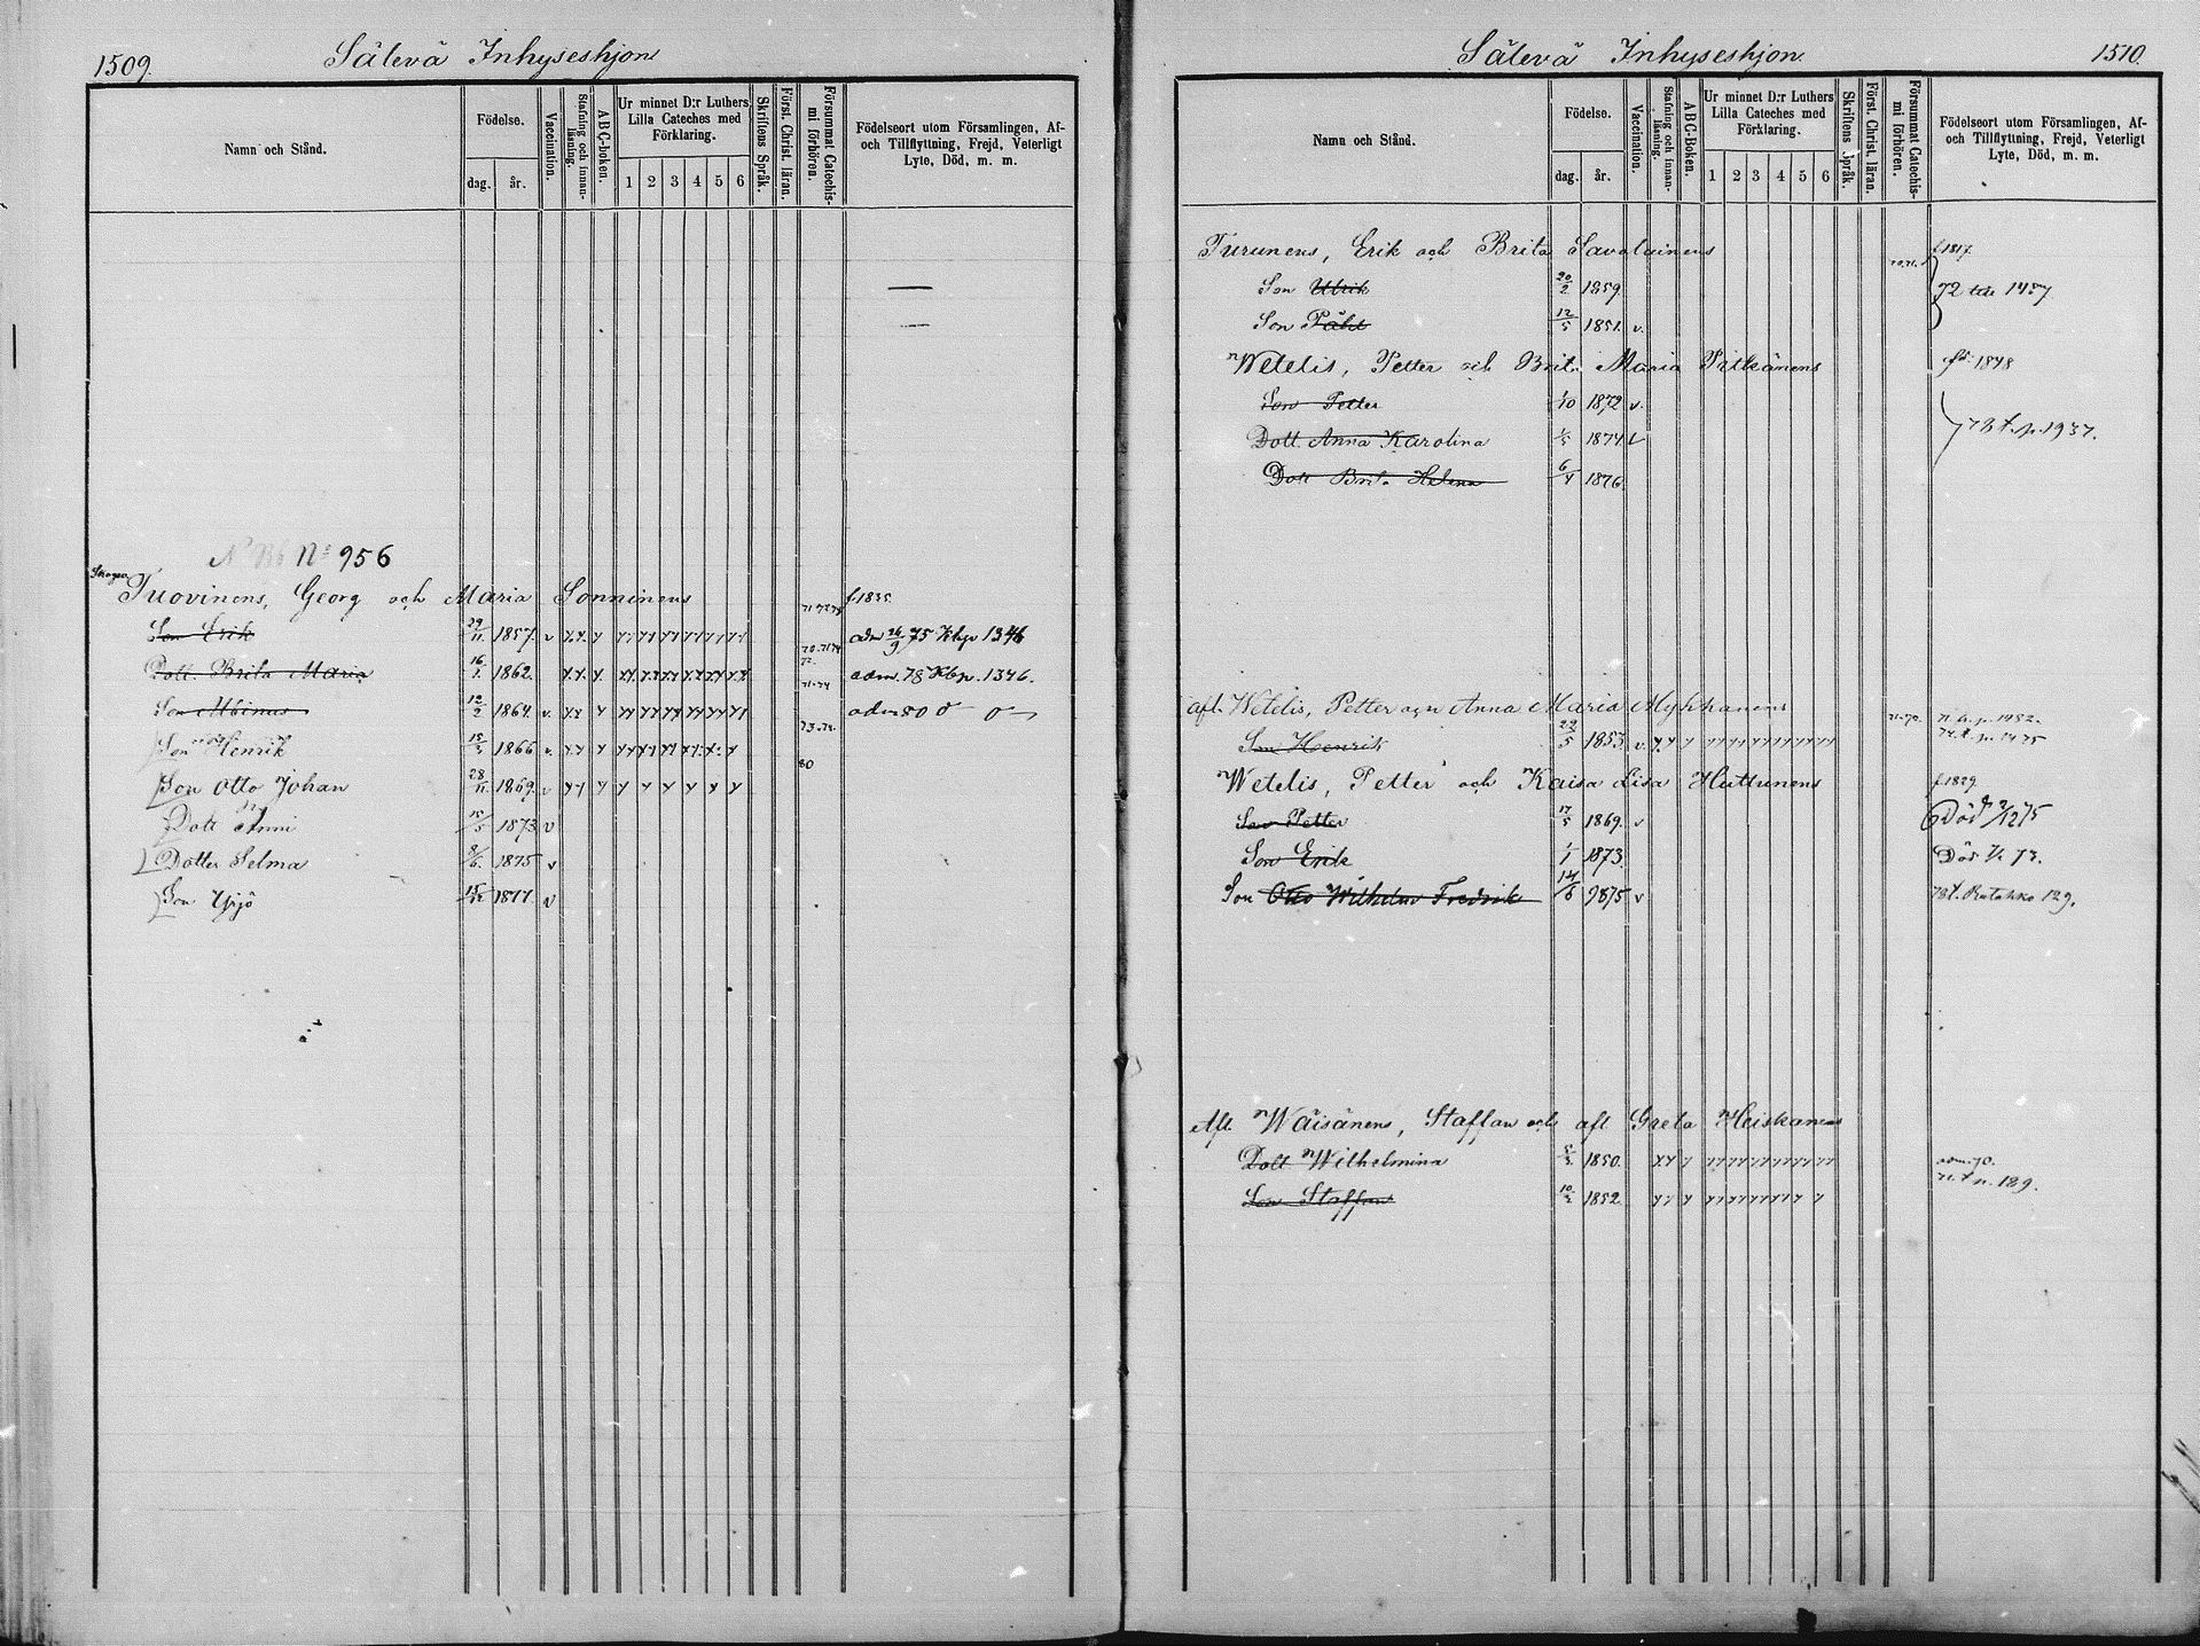 1509.
Sälevä Inhyseshjon
Namn och Stånd.
Födelse.
dag.
år.
Vaccination.
Stafning och innanläsning.
ABC-boken.
Ur minnet D:r Luthers Lilla Cateches med Förklaring.
1 2 3 4 5 6
Skriftens Språk.
Först. Christ. läran.
Försummat Catechismi förhören.
Födelseort utom Församlingen, Af- och Tillflyttning, Frejd, Veterligt Lyte, Död, m. m.
No 956
Tuovinens, Georg och Maria Sonninens f. 1835.
Son Erik 29/11 1857. v adm 26/9 75 Kbp 1346
Dott. Brita Maria 16/1 1862. adm. 78 Kbp. 1346.
Son Albinus 12/2 1864. v. adm 80
Son Henrik 1866 v.
80
Son Otto Johan 28/11 1869. v
Dott Anni 15/5 1873 v
Dotter Selma 8/6 1875 v
Son Yrjö 15/12 1877. v
Sälevä Inhyseshjon.
1510.
Namn och Stånd.
Födelse.
dag.
år.
Vaccination.
Stafning och innanläsning.
ABC-Boken.
Ur minnet D:r Luthers Lilla Cateches med Förklaring.
1 2 3 4 5 6
Skriftens Språk.
Först. Christ. läran.
Försummat Catechismi förhören.
Födelseort utom Församlingen, Af- och Tillflyttning, Frejd, Veterligt Lyte, Död, m. m.
Turunens, Erik och Brita Savolainens f. 1817.
Son Ulrik 20/2 1859. 72 1457
Son Påhl 12/5 1851. v.
Wetelis, Petter och Brita Maria Pitkänens 1848
Son Petter 1/10 1872 v.
Dott. Anna Karolina 1/5 1874 v 78 t. p. 1937.
Dott Brita Helena 6/4 1876.
afl. Wetelis, Petter och Anna Maria Mykkänens
Son Henrik 22/5 1853. v.
Wetelis, Petter och Kaisa Lisa Huttunens f. 1829.
Son Petter 17/5 1869. v Död
Son Erik 1/1 1873. Död
Son Otto Wilhelm Fredrik 14/6 1875 v 78 t. Ratakko 129.
Afl. Wäisänens, Staffan och afl Greta Heiskanens
Dott Wilhelmina 1850. adm. 70.
Son Staffan 1852. 189.